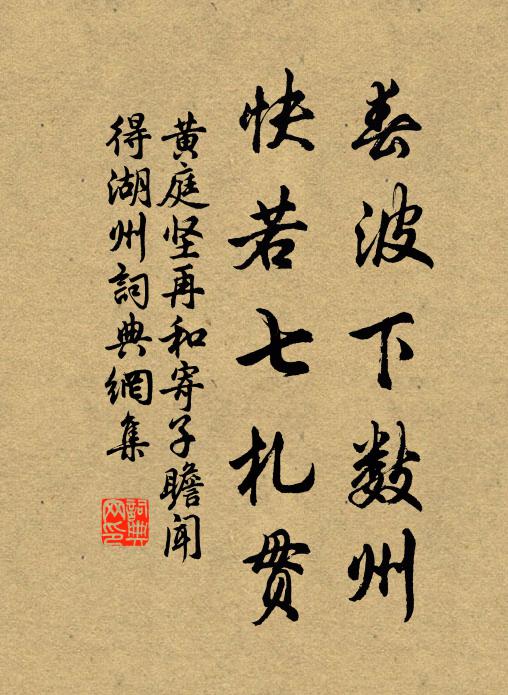 春波下数州
快若七札贯
黄庭坚再和寄子瞻闻
得湖州詞典網集
詞典
网印